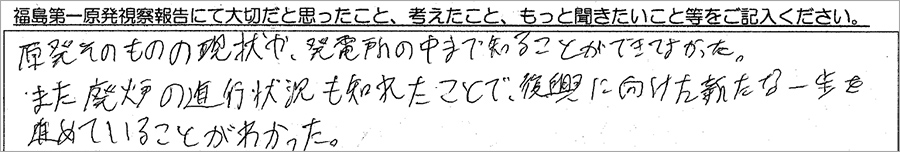 福島第一原発視察報告にて大切だと思ったこと、考えたこと、もっと聞きたいこと等をご記入ください。
原発そのものの現状や、発電所の中まで知ることができてよかった。
また廃炉の進行状況も知れたことで、復興に向けた新たな一歩を
進めていることがわかった。